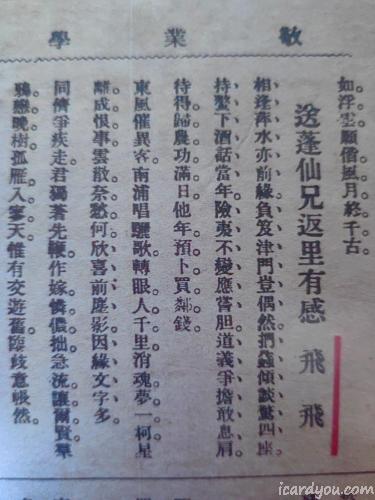 敬業學
如浮雲願偕風月終千古。
送蓬仙兄返里有感 飛飛
相逢萍水亦前緣。負笈津門豈偶然。捫蝨傾談驚四座。
持螯下酒話當年。險夷不變應嘗胆。道義爭擔敢息肩。
待得歸農功滿日。他年預卜買鄰錢。
東風催異客。南浦唱驪歌。轉眼人千里。消魂夢一柯。星
離成恨事。雲散奈愁何。欣喜前塵影。因緣文字多。
同儕爭疾走。君獨著先鞭。作嫁憐儂拙。急流讓爾賢。羣
鴉戀晚樹。孤雁入寥天。惟有交遊舊。臨歧意悵然。
icardyou.com